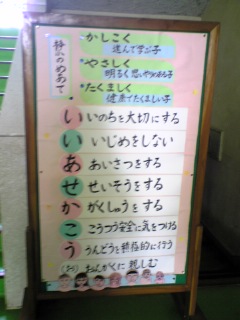 ・かしこく
進んで学ぶ子
・やさしく
明るく思いやりのある子
・たくましく
健康でたくましい子
い いのちを大切にする
い いじめをしない
あ あいさつをする
せ せいそうをする
か がくしゅうをする
こ こうつう安全に気をつける
う うんどうを積極的に行う
おんがくに親しむ